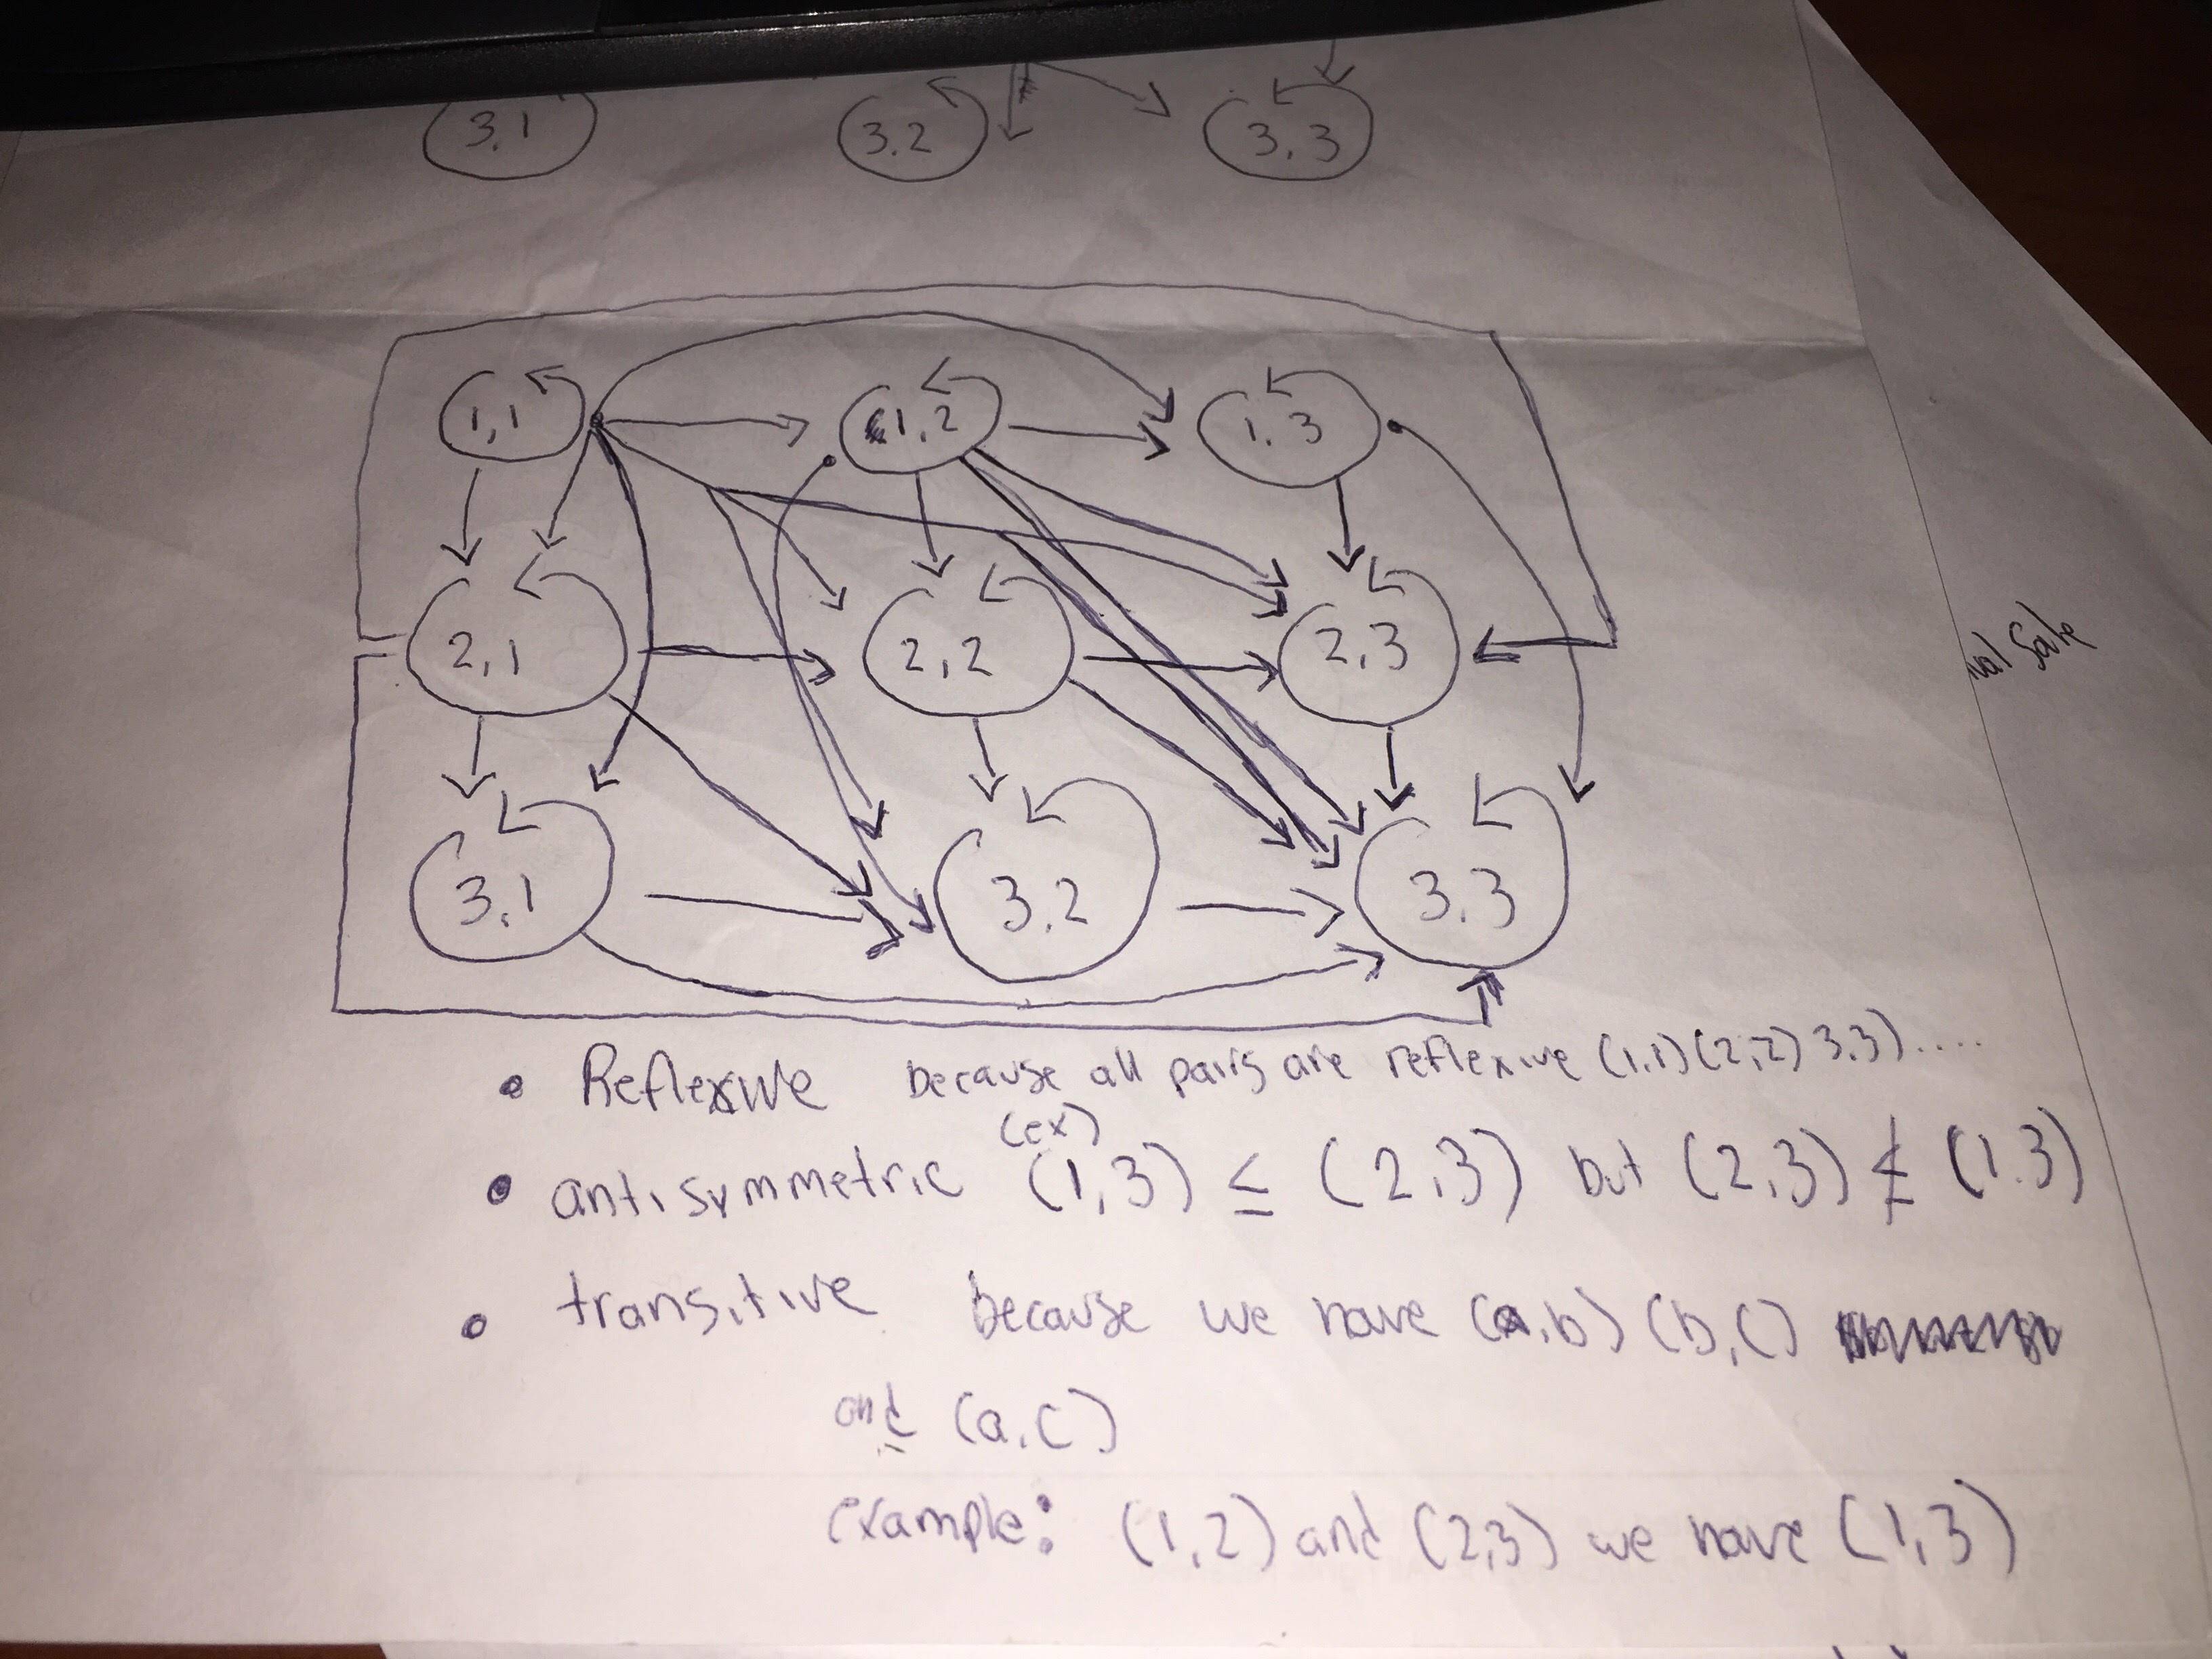 3.1 3.2 3.3
1,1 1,2 1.3
2,1 2,2 2,3
3.1 3.2 3.3
• Reflexive because all pairs are reflexive (1,1) (2,2) 3,3) ....
(ex)
• antisymmetric (1,3) ≤ (2,3) but (2,3) ≰ (1.3)
• transitive because we have (a,b) (b,c)
and (a,c)
example: (1,2) and (2,3) we have (1,3)
Sale